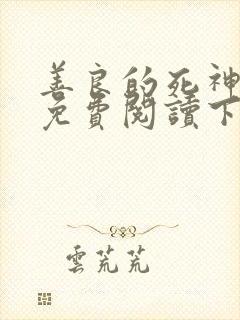 善良的死神
免費閱讀下
雲芃芃